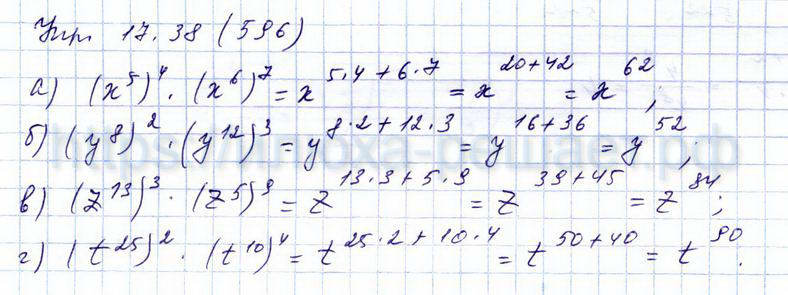 Упр. 17.38 (596)
а) (x⁵)⁴ · (x⁶)⁷ = x⁵·⁴⁺⁶·⁷ = x²⁰⁺⁴² = x⁶²;
б) (y⁸)² · (y¹²)³ = y⁸·²⁺¹²·³ = y¹⁶⁺³⁶ = y⁵²;
в) (z¹³)³ · (z⁵)⁹ = z¹³·³⁺⁵·⁹ = z³⁹⁺⁴⁵ = z⁸⁴;
г) (t²⁵)² · (t¹⁰)⁴ = t²⁵·²⁺¹⁰·⁴ = t⁵⁰⁺⁴⁰ = t⁹⁰.